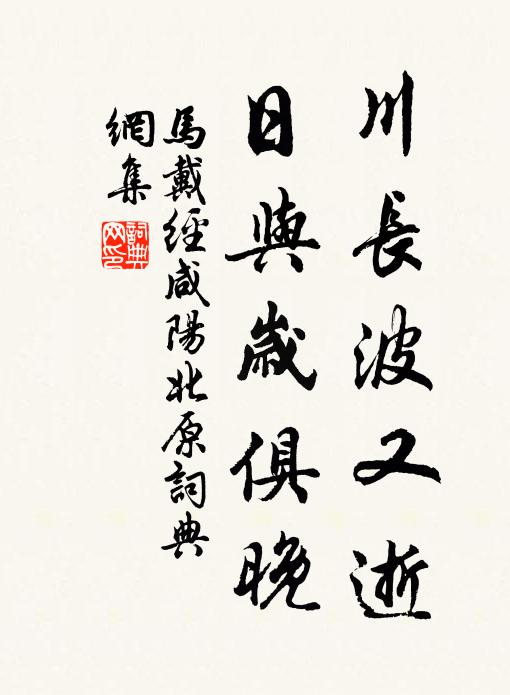 川長波又逝
日與歲俱晚
馬戴經咸陽北原詞典
網集
詞典
网印